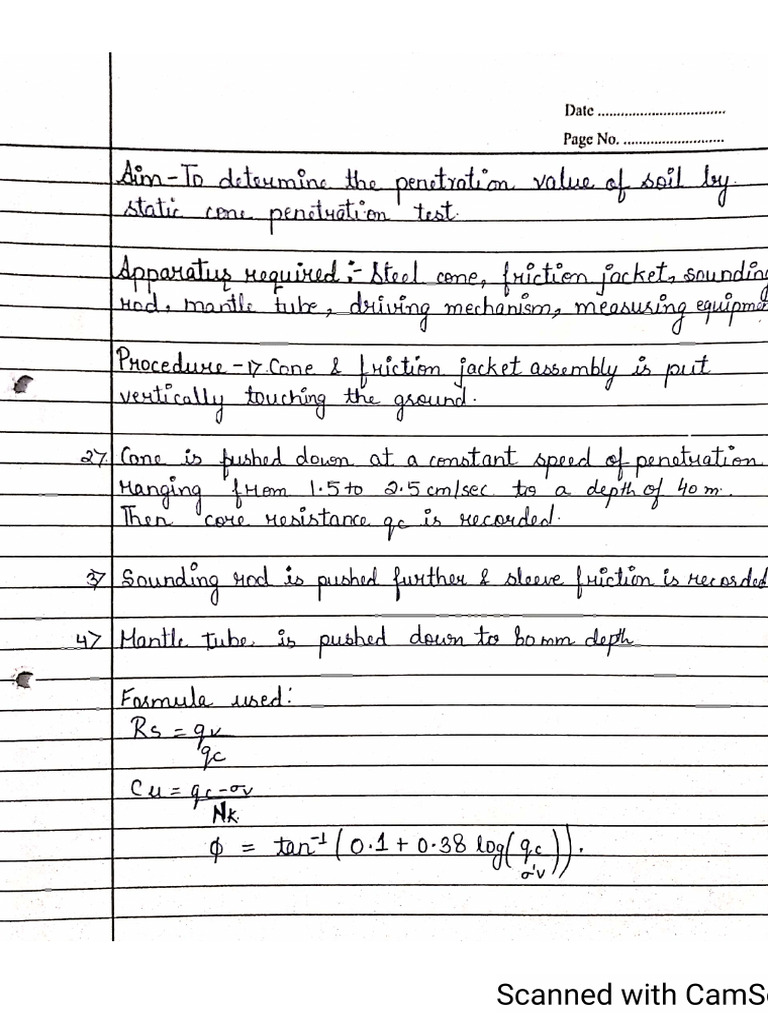 Date ................................
Page No. ..........................
Aim - To determine the penetration value of soil by
static cone penetration test.
Apparatus required :- Steel cone, friction jacket, soundin
rod, mantle tube, driving mechanism, measuring equipme
Procedure - 1> Cone & friction jacket assembly is put
vertically touching the ground.
2> Cone is pushed down at a constant speed of penetration
ranging from 1.5 to 2.5 cm/sec to a depth of 40 m.
Then core resistance qc is recorded.
3> Sounding rod is pushed further & sleeve friction is recorded
4> Mantle tube is pushed down to 80 mm depth
Formula used:
Rs = qv/qc
Cu = qc - σv/Nk
φ = tan⁻¹ (0.1 + 0.38 log(qc/σ'v)).
Scanned with CamS